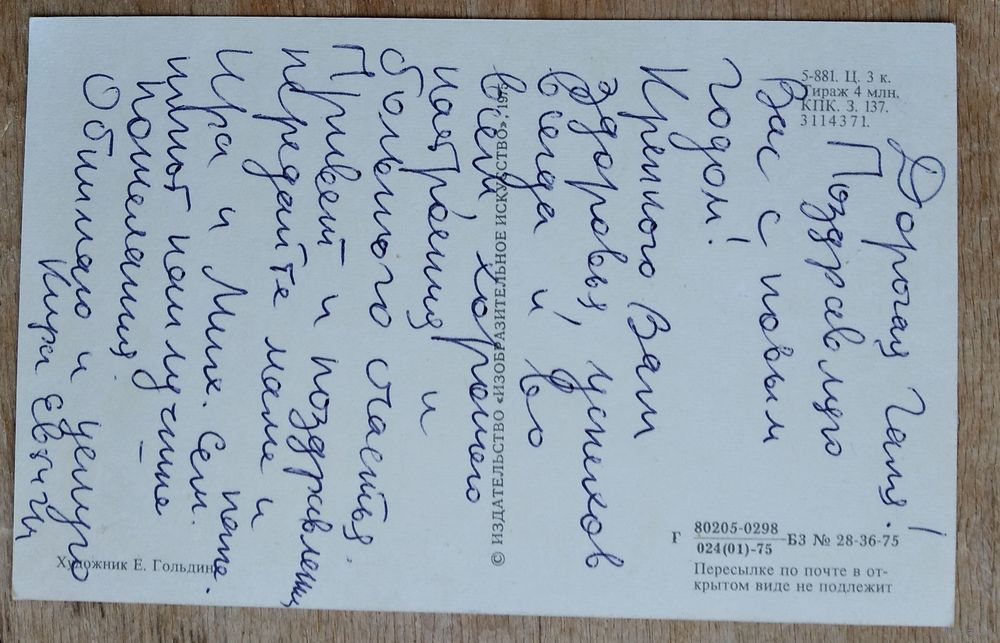 Дорогая Галя!
Поздравляю
Вас с новым
годом!
Крепкого Вам
здоровья, успехов
всегда и во
всем, хорошего
настроения и
большого счастья.
Привет и поздравления
передайте маме и
папе.
Ира и Мих. Сем.
шлют наилучшие
пожелания.
Обнимаю и целую
Кира
5-881. Ц. 3 к.
Тираж 4 млн.
КПК. З. 137.
3114371.
© ИЗДАТЕЛЬСТВО «ИЗОБРАЗИТЕЛЬНОЕ ИСКУССТВО»,
Г 80205-0298
024(01)-75 БЗ № 28-36-75
Пересылке по почте в от-
крытом виде не подлежит
Художник Е. Гольдин